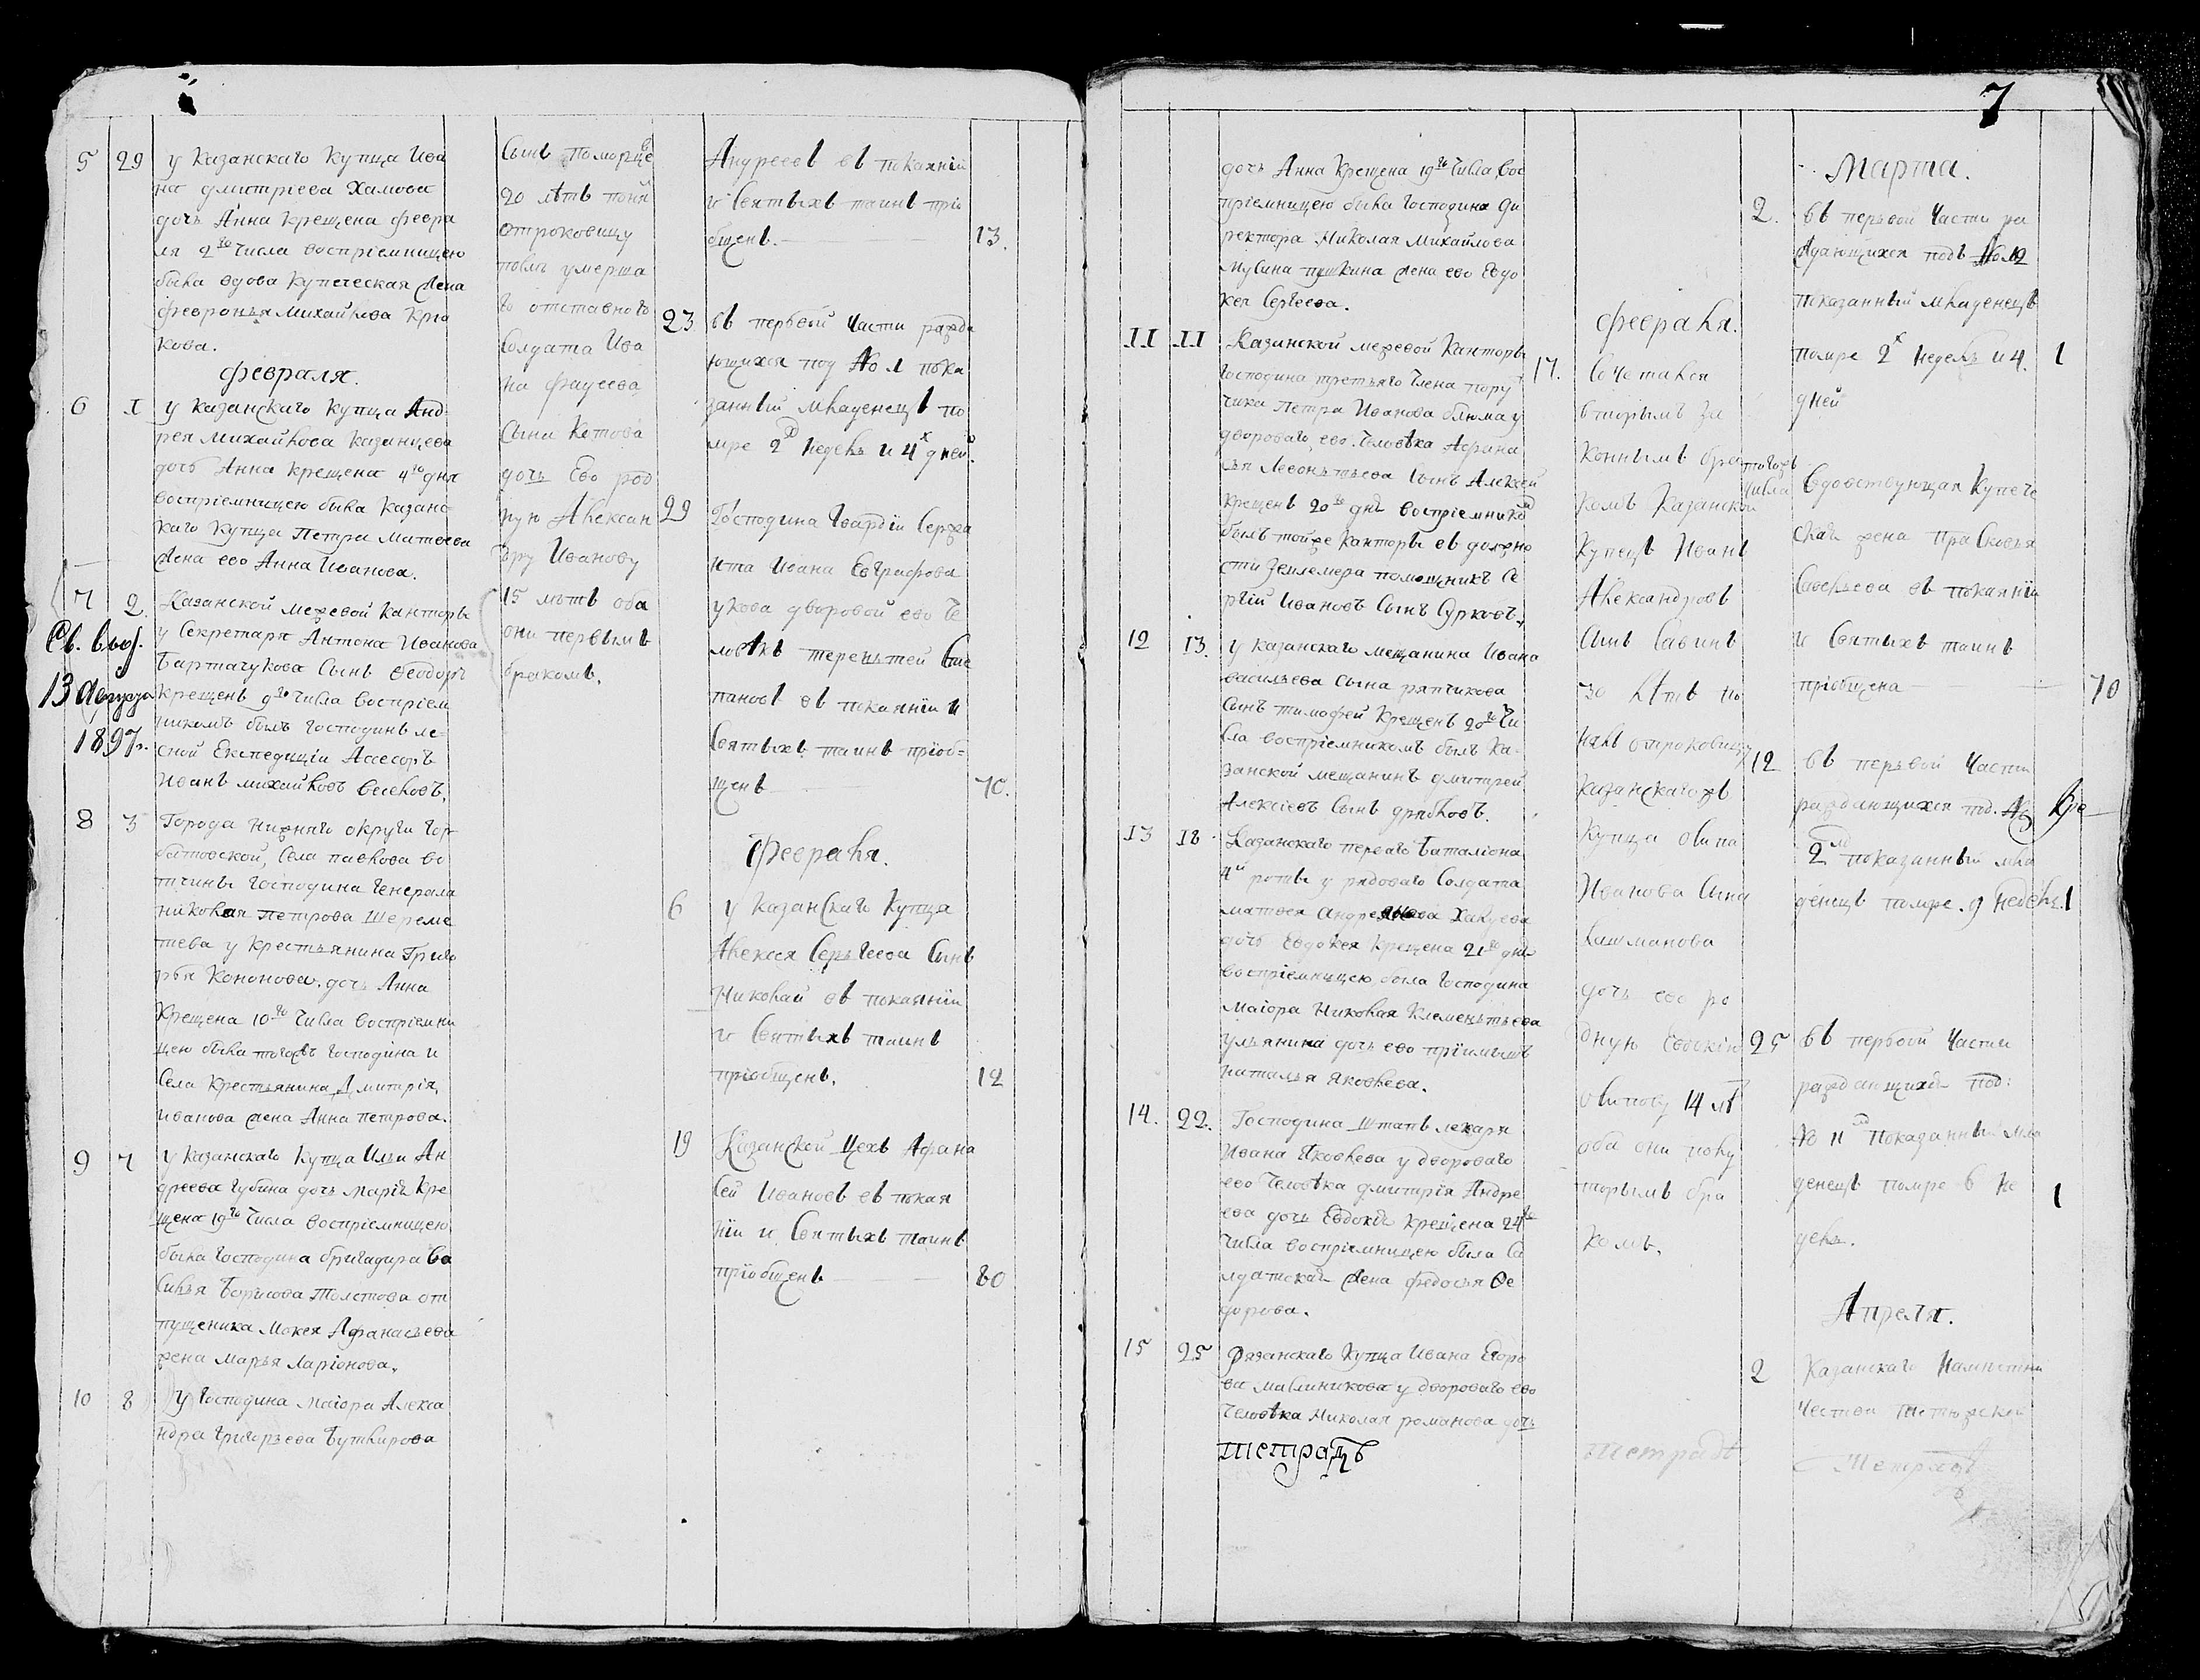 5 29 у Казанскаго Купца Ива
на Дмитріева Хамова
дочь Анна Крещена февра
ля 2го числа воспріемницею
была вдова Купеческая жена
Февронья Михайлова Крю
кова.
Февраля.
6 I у Казанскаго Купца Анд
рея Михайлова Казанцева
дочь Анна крещена 4го дня
воспріемницею была Казанс
каго Купца Петра Матвеева
жена ево Анна Иванова.
7 2 Казанской межевой Канторы
у Секретаря Антона Иванова
Св. выд.
Бартачукова Сынъ Феодоръ
13 Августа
крещенъ 9го числа воспріем
никомъ былъ Господинъ ле-
1897г.
сной Експедиціи Асесоръ
Иванъ михайловъ
8 3 Города нижняго округи Гор
батовской, Села павлова во
тчины Господина Генерала
николая петрова Шереме
тева у Крестьянина Григо
рья Кононова дочь Анна
Крещена 10го числа воспріемни
цею была тогожъ Господина и
Села Крестьянина Дмитрія
иванова жена Анна петрова.
9 7 у казанскаго Купца Ильи Ан
дреева Губина дочь марія Кре
щена 19го числа воспріемницею
была Господина бригадира Ва
силья Борисова Толстова отп
пущеника Мокея Афанасьева
жена марья Ларіонова.
10 8 у Господина маіора Алекса
ндра Григорьева Бутлирова
Сынъ поморце
20 лѣтъ понял
отроковицу
умерша
го отставнаго
Солдата Ива
на фадеева
Сына Котова
дочь Ево род
ную Алексан
дру Иванову
15 лѣтъ оба
они первымъ
бракомъ.
Андреевъ въ покаяніи
и Святыхъ таинъ прі
общенъ. 13.
23 въ первой части ражда
ющихся под No 1 пока
занный младенецъ по
мре 2хъ недель и 4х дней.
29 Господина Гвардіи Сержа
нта Ивана Евграфова
укова дворовой ево че
ловѣкъ терентей Сте
пановъ въ покаяніи и
Святыхъ таинъ пріоб-
щенъ 70.
Февраля.
6 у Казанскаго Купца
Алексея Сергеева Сынъ
Николай въ покаяніи
и Святыхъ таинъ
пріобщенъ. 12
19 Казанской Цехъ Афана
сей Ивановъ въ покая
ніи и Святыхъ таинъ
пріобщенъ 80
7
дочь Анна Крещена 19го числа вос
пріемницею была Господина ди
ректора Николая Михайлова
мусина пушкина жена ево Евдо
кея Сергеева.
II II Казанской межевой Канторы
Господина третьяго члена пору
чика Петра Иванова блюма у
двороваго ево человѣка Афана
сья Леонтьева Сынъ Алексей
крещенъ 20го дня воспріемником
былъ тойже Канторы въ должно
сти Землемера помощникъ Се
ргій Ивановъ Сынъ Юрковъ.
12 13. у казанскаго мещанина Ивана
васильева Сына ряпчикова
Сынъ тимофей Крещенъ 20го чи
сла воспріемникомъ былъ Ка-
занской мещанинъ дмитрей
Алексіевъ Сынъ
13 18 Казанскаго перваго Баталіона
4й роты у рядоваго Солдата
матвея Хакуева
дочь Евдокея Крещена 21го дня
воспріемницею была Господина
маіора Николая Клементьева
ульянина дочь ево пріимышъ
наталья Яковлева.
14. 22. Господина Штапъ лекаря
Ивана Яковлева у двороваго
ево человѣка дмитрія Андре
ева дочь Евдокія крещена 24го
числа воспріемницею была Со
лдатская жена федосья Ѳе
дорова.
15 25 Казанскаго Купца Ивана Егоро
ва малиникова у двороваго ево
человѣка Николая романова дочь
тетрадь
Февраля.
17. Сочетался
вторымъ за
коннымъ бра
комъ Казанской
Купецъ Иванъ
Александровъ
Сынъ Савинъ
30 лѣтъ по
нялъ отроковицу
Казанскагожъ
Купца осипа
Иванова Сына
Кашманова
дочь ево ро
дную Евдокію
осипову 14 лѣ
оба они
вторымъ бра
комъ.
тетрадь
Марта.
2. въ первой части ра
ждающихся подъ No 12
показанный младенецъ
помре 2х недель и 4. 1
дней
тогожъ
числа
вдовствующая Купече
ская жена Прасковья
Савельева въ покаяніи
и Святыхъ таинъ
пріобщена 70
12 въ первой части
раждающихся под. No
2м показанный мла
денецъ помре. 9 недель. 1
25 въ первой части
раждающихся под:
No 11 показанный мла
денецъ помре 6 не 1
дель.
Апреля.
2 Казанскаго Наместни
чества
Тетрадь